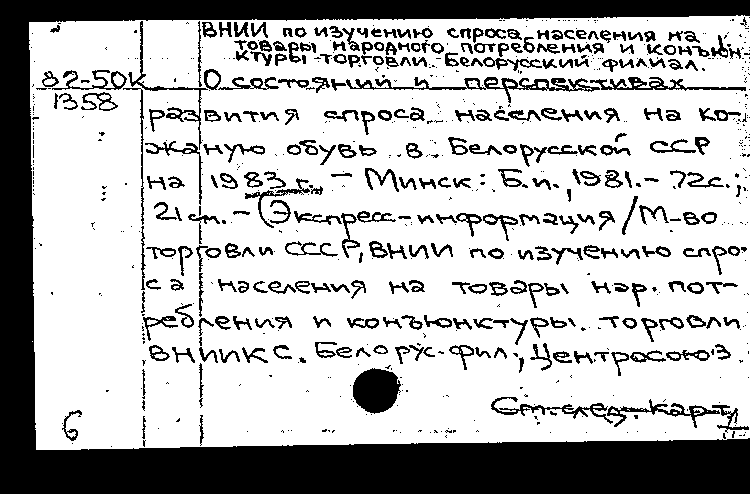 ВНИИ по изучению спроса населения на
товары народного потребления и конъюн-
ктуры торговли. Белорусский филиал.
82-50К О состоянии и перспективах
1358 развития спроса населения на ко-
жаную обувь в Белорусской ССР
на 1983 г. - Минск: Б.и., 1981. - 72с.;
21 см. - (Экспресс-информация / М-во
торговли СССР, ВНИИ по изучению спро-
са населения на товары нар. пот-
ребления и конъюнктуры торговли
ВНИИКС. Белорус. фил.; Центросоюз
См. след. карт.
6